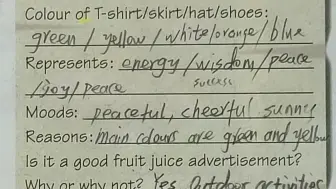 Colour of T-shirt/skirt/hat/shoes:
green / yellow / white/orange/blue
Represents: energy/wisdom/peace
/joy/peace success
Moods: peaceful, cheerful sunny
Reasons: main colours are green and yellow
Is it a good fruit juice advertisement?
Why or why not? Yes Outdoor activities